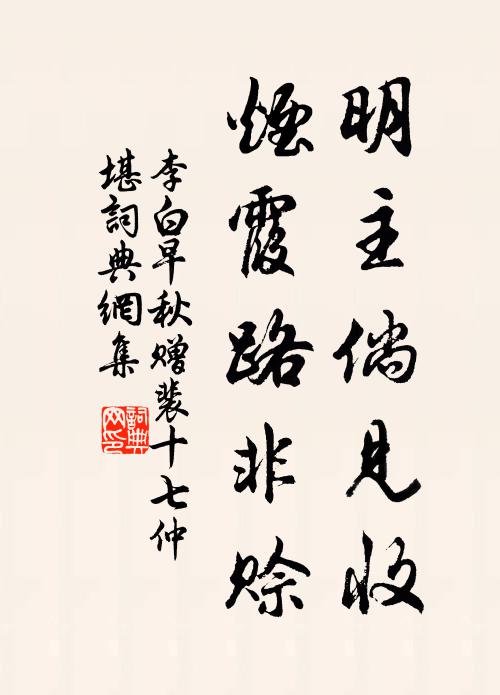 明主倘見收
煙霞路非賒
李白早秋贈裴十七仲
堪詞典網集
詞典
网印